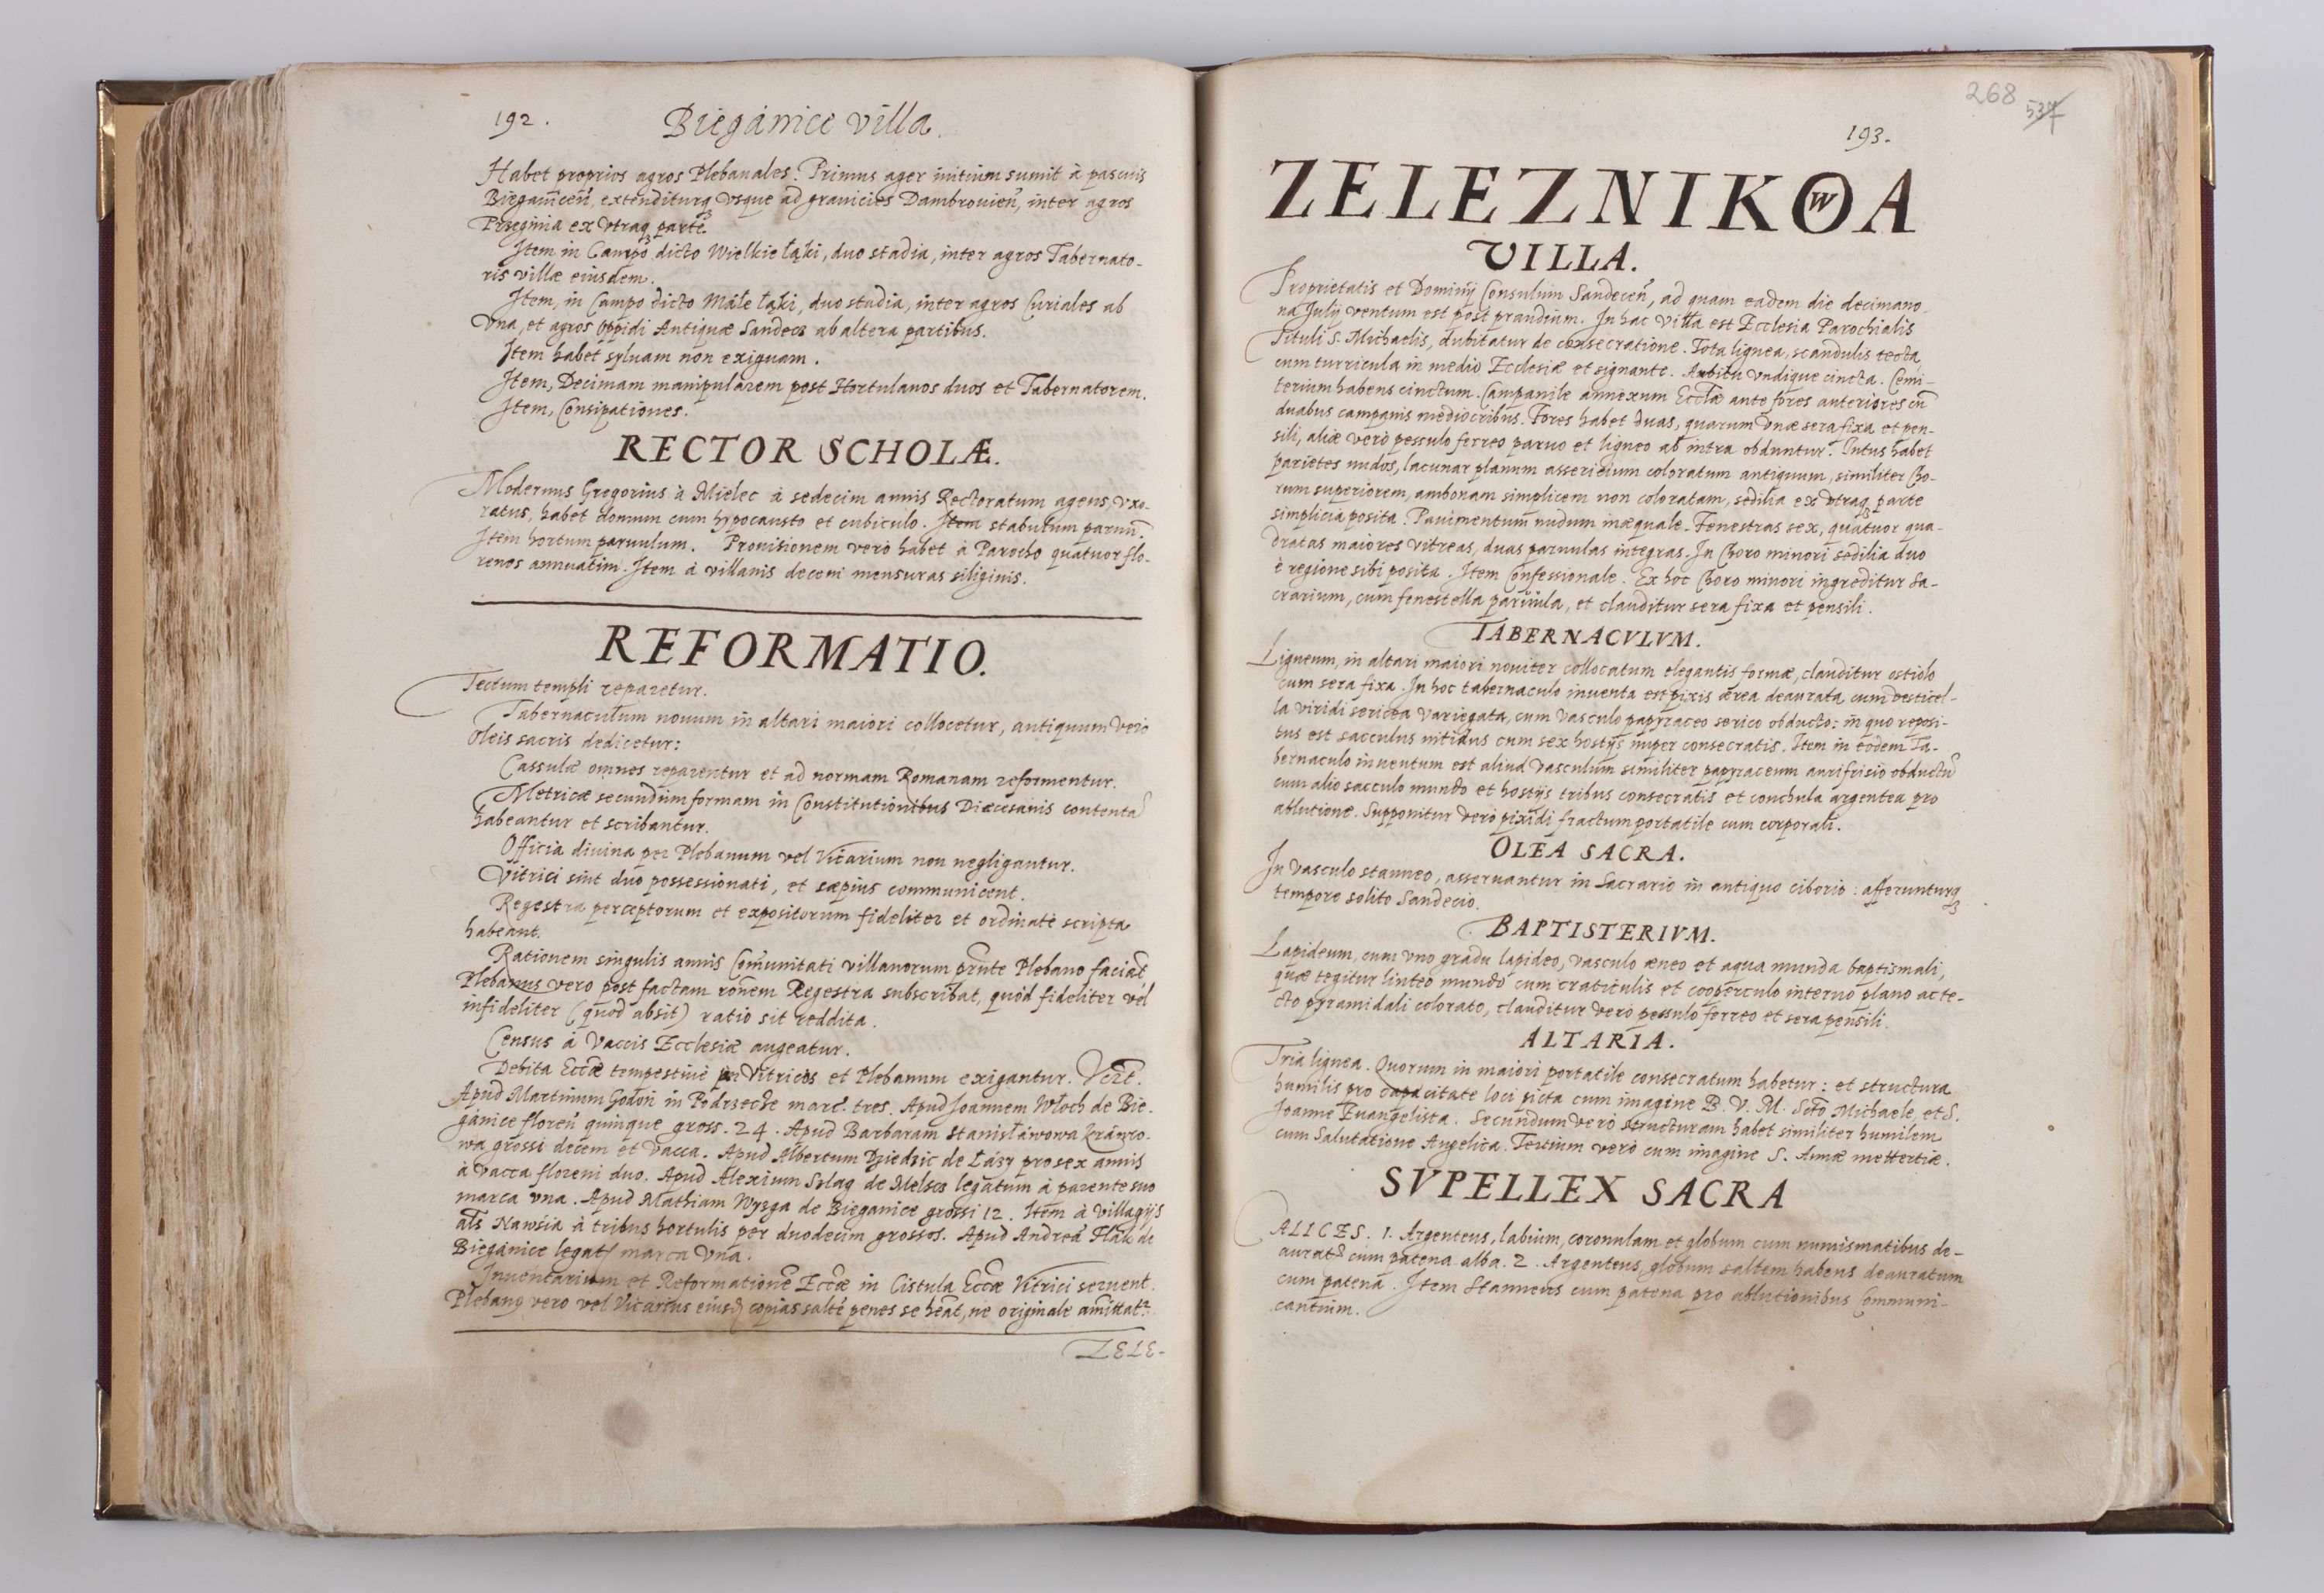 192.
Biegánice villa.
Habet proprios agros Plebanales. Primus ager initium sumit à pascuis
Bieganicen̄, extenditurq̃ vsque ad granicies Dambrouien̄, inter agros
ex vtraq̃ parte.
Item in Campo dicto Wielkie łąki, duo stadia, inter agros Tabernato-
ris villæ eiusdem.
Item, in Campo dicto Máłe łąki, duo stadia, inter agros Curiales ab
vna, et agros Oppidi Antiquæ Sandecz ab altera partibus.
Item habet syluam non exiguam.
Item, Decimam manipularem post Hortulanos duos et Tabernatorem.
Item, Consipationes.
RECTOR SCHOLÆ.
Modernus Gregorius à Mielec à sedecim annis Rectoratum agens, vxo-
ratus, habet domum cum hypocausto et cubiculo. Item stabulum paruū.
Item hortum paruulum. Prouisionem verò habet à Parocho quatuor flo-
renos annuatim. Item à villanis decem mensuras siliginis.
REFORMATIO.
Tectum templi reparetur.
Tabernaculum nouum in altari maiori collocetur, antiquum verò
Oleis sacris dedicetur:
Cassulæ omnes reparentur et ad normam Romanam reformentur.
Metricæ secundùm formam in Constitutionibus Diæcesanis contentā
habeantur et scribantur.
Officia diuina per Plebanum vel Vicarium non negligantur.
Vitrici sint duo possessionati, et sæpius communicent.
Regestra perceptorum et expositorum fideliter et ordinatè scripta
habeant.
Rationem singulis annis Com̄unitati villanorum prn̄te Plebano faciāt,
Plebanus vero post factam rōnem Regestra subscribat, quòd fideliter vel
infideliter (quod absit) ratio sit reddita.
Census à Vaccis Ecclesiæ augeatur.
Debita Eccæ tempestiuè per Vitricos et Plebanum exigantur. Vert.
Apud Martinum Godoń in Podrzecze marc. tres. Apud Joannem Włoch de Bie-
gánice floren̄ quinque gross. 24. Apud Barbaram Stanisłáwowa
wa grossi decem et vacca. Apud Albertum Dziedzic de Łázy pro sex annis
à vacca floreni duo. Apud Alexium de legatum à parente suo
marca vna. Apud Mathiam Wyzga de Bieganice grossi 12. Item à villagijs
al̄s Nawśia à tribus hortulis per duodecim grossos. Apud Andreā de
Biegánice legat marca vna.
Inuentarium et Reformationē Eccæ in Cistula Eccæ Vitrici seruent.
Plebanꝯ vero vel Vicarius eiusd̃ copias saltē penes se hēat, ne originale amittatr.
ZELE-
268 537
193.
ZELEZNIKOWA
VILLA.
Proprietatis et Dominij Consulum Sandecen̄, ad quam eadem die decimano-
na Julij ventum est post prandium. In hac Villa est Ecclesia Parochialis
Tituli S. Michaelis, dubitatur de consecratione. Tota lignea, scandulis tecta,
cum turricula in medio Ecclesiæ et signante. Ambitu vndique cincta. Cemi-
terium habens cinctum. Campanile annexum Eccl̄æ ante fores anteriores cū
duabus campanis mediocribus. Fores habet duas, quarum vnæ sera fixa et pen-
sili, aliæ verò pessulo ferreo paruo et ligneo ab intra obduntur. Intus habet
parietes nudos, lacunar planum assericium coloratum antiquum, similiter Cho-
rum superiorem, ambonam simplicem non coloratam, sedilia ex vtraq̃ parte
simplicia posita. Pauimentum nudum inæquale. Fenestras sex, quatuor qua-
dratas maiores vitreas, duas paruulas integras. In Choro minori sedilia duo
è regione sibi posita. Item Confessionale. Ex hoc Choro minori ingreditur Sa-
crarium, cum fenestella paruula, et clauditur sera fixa et pensili.
TABERNACVLVM.
Ligneum, in altari maiori nouiter collocatum elegantis formæ, clauditur ostiolo
cum sera fixa. In hoc tabernaculo inuenta est pixis ærea deaurata cum vesticel-
la viridi sericea variegata, cum vasculo papyraceo serico obducto: in quo reposi-
tus est sacculus nitidus cum sex hostijs nuper consecratis. Item in eodem Ta-
bernaculo inuentum est aliud vasculum similiter papyraceum aurifrisio obductū
cum alio sacculo mundo et hostijs tribus consecratis et conchula argentea pro
ablutione. Supponitur verò pixidi fractum portatile cum corporali.
OLEA SACRA.
In vasculo stanneo, asseruantur in Sacrario in antiquo ciborio: afferunturq̃
tempore solito Sandecio.
BAPTISTERIVM.
Lapideum, cum vno gradu lapideo, vasculo æneo et aqua munda baptismali,
quæ tegitur linteo mundo cum craticulis et cooperculo interno plano ac te-
cto pyramidali colorato, clauditur verò pessulo ferreo et sera pensili.
ALTARIA.
Tria lignea. Quorum in maiori portatile consecratum habetur: et structura
humilis pro capacitate loci picta cum imagine B. V. M. Scto Michaele, et S.
Joanne Euangelista. Secundum verò structuram habet similiter humilem
cum Salutatione Angelica. Tertium verò cum imagine S. Annæ mettertiæ.
SVPELLEX SACRA
CALICES. 1. Argenteus, labium, coronulam et globum cum numismatibus de-
auratū cum patena alba. 2. Argenteus, globum saltem habens deauratum
cum patena. Item Stanneus cum patena pro ablutionibus Communi-
cantium.